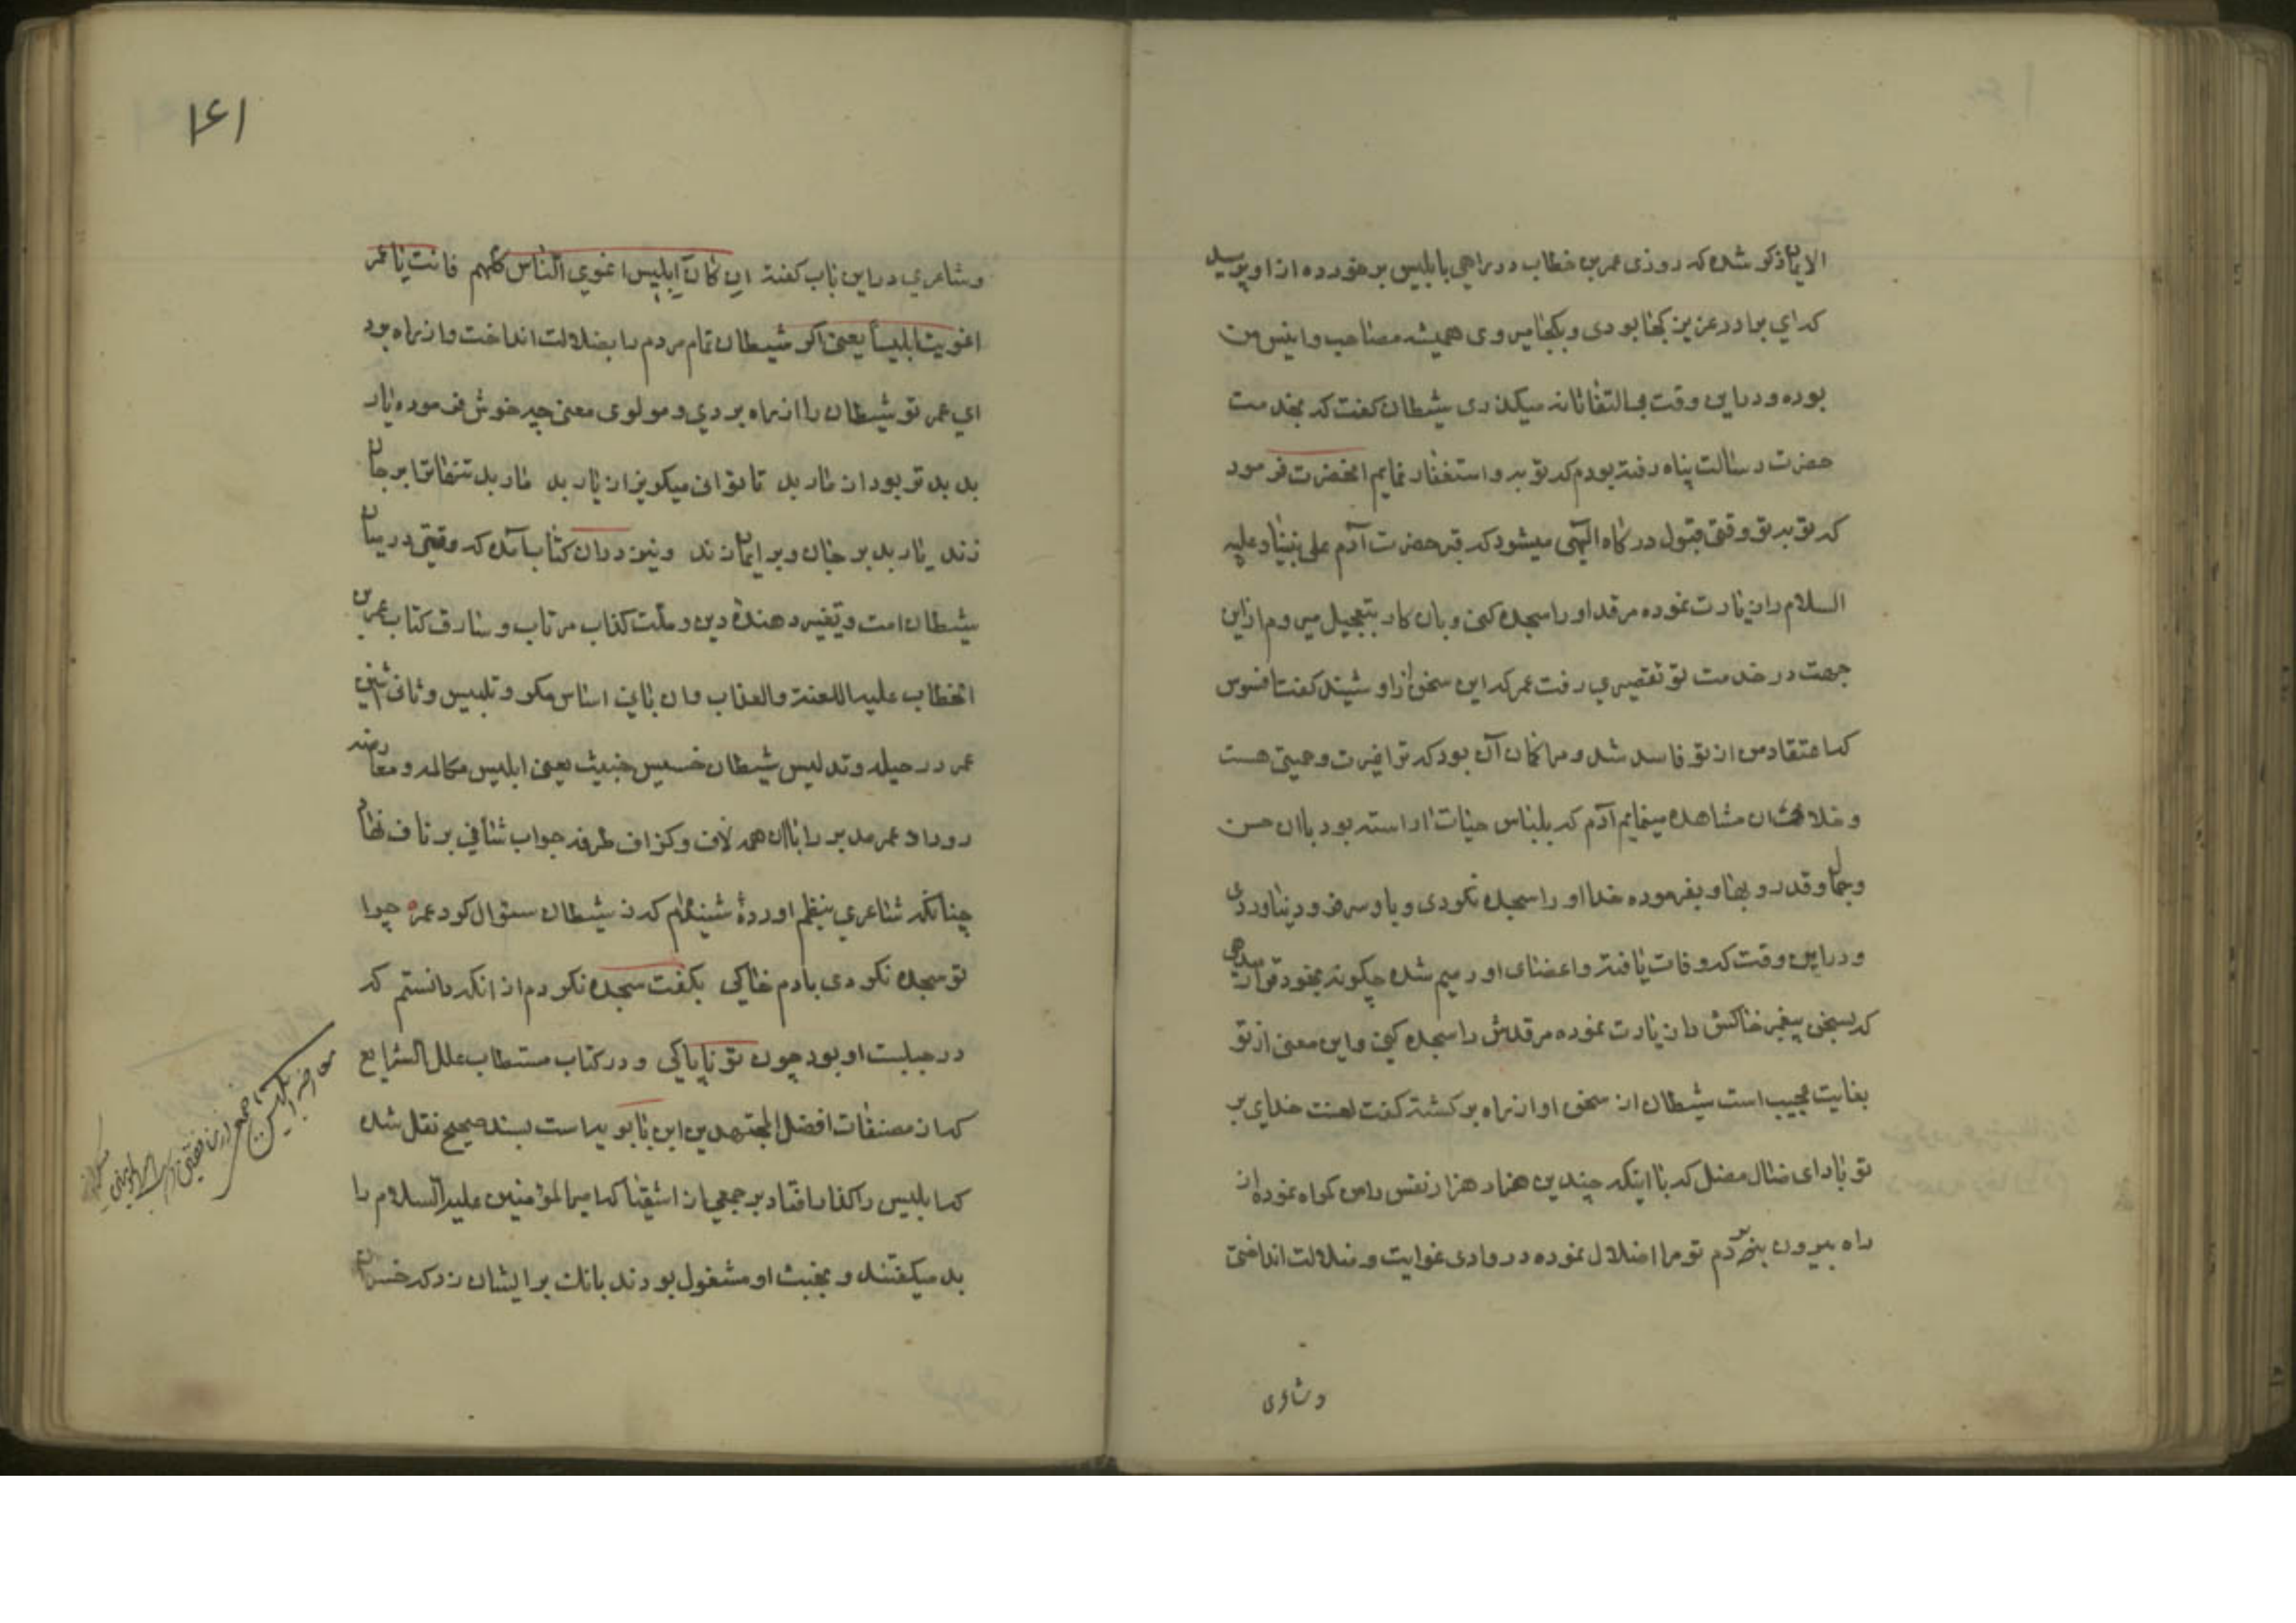 الایمان ذکر شده که روزی عمر بن خطاب در راهی با بلیس برخورده از او پرسید
که ای برادر عزیز کجا بودی و بکجا میروی همیشه مصاحب و انیس من
بوده و در این وقت بی التفاتانه میکذری شیطان کفت که بخدمت
حضرت رسالت پناه رفته بودم که توبه و استغفار نمایم انحضرت فرمود
که توبه تو وقتی قبول درکاه الهی میشود که قبر حضرت آدم علی نبینا و علیه
السلام را زیارت نموده مرقد او را سجده کنی و بان کار بتعجیل میروم از این
جهت در خدمت تو تقصیری رفت عمر که این سخن از او شنید کفت افسوس
که اعتقاد من از تو فاسد شد و مرا کمان آن بود که ترا غیرت و حمیتی هست
و خلاف ان مشاهده مینمایم آدم که بلباس حیات اراسته بود باان حسن
و جمال و قدر و بها و بفرموده خدا او را سجده نکردی و باو سر فرو دنیاوردی
و در این وقت که وفات یافته و اعضای او رمیم شده چکونه بخود قرار میدهی
که بسخن پیغمبر خاکش را زیارت نموده مرقدش را سجده کنی و این معنی از تو
بغایت عجیب است شیطان از سخن او از راه برکشته کفت لعنت خدای بر
تو باد ای ضال مضل که با اینکه چندین هزار هزار نفس را من کمراه نموده از
راه بیرون بردم تو مرا اضلال نموده در وادی غوایت و ضلالت انداختی
و شاعری
۱۶۱
و شاعری در این باب کفته ان کان ابلیس اغوی الناس کلهم فانت یا عمر
اغویت ابلیساً یعنی اکر شیطان تمام مردم را بضلالت انداخت و از راه برد
ای عمر تو شیطان را از راه بردی و مولوی معنی چه خوش فرموده یار
بد بدتر بود از مار بد تا توانی میکریز از یار بد مار بد تنها ترا بر جان
زند یار بد بر جان و بر ایمان زند و نیز در ان کتاب آمده که وقتی در میان
شیطان امت و تغییر دهندهٔ دین و ملت کذاب مرتاب و سارق کتاب عمر بن
الخطاب علیه اللعنة والعذاب و ان بانی اساس مکر و تلبیس و ثانی اثنین
عمر در حیله و تدلیس شیطان خسیس خبیث یعنی ابلیس مکالمه و معارضه
رو داد عمر مدبر را باان همه لاف و کزاف طرفه جواب شافی بر ناف نهاد
چنانکه شاعری بنظم اوردهٔ شنیدهام که ز شیطان سئوال کرد عمر چرا
تو سجده نکردی بادم خاکی بکفت سجده نکردم از انکه دانستم که
در جبلیت او بود چون تو ناپاکی و در کتاب مستطاب علل الشرایع
که از مصنفات افضل المجتهدین ابن بابویه است بسند صحیح نقل شده
که ابلیس را کذار افتاد بر جمعی از اشقیا که امیر المؤمنین علیه السلام را
بد میکفتند و بغیبت او مشغول بودند بانک بر ایشان زد که خسران
معارضه ابلیس با جمعی از منافقین